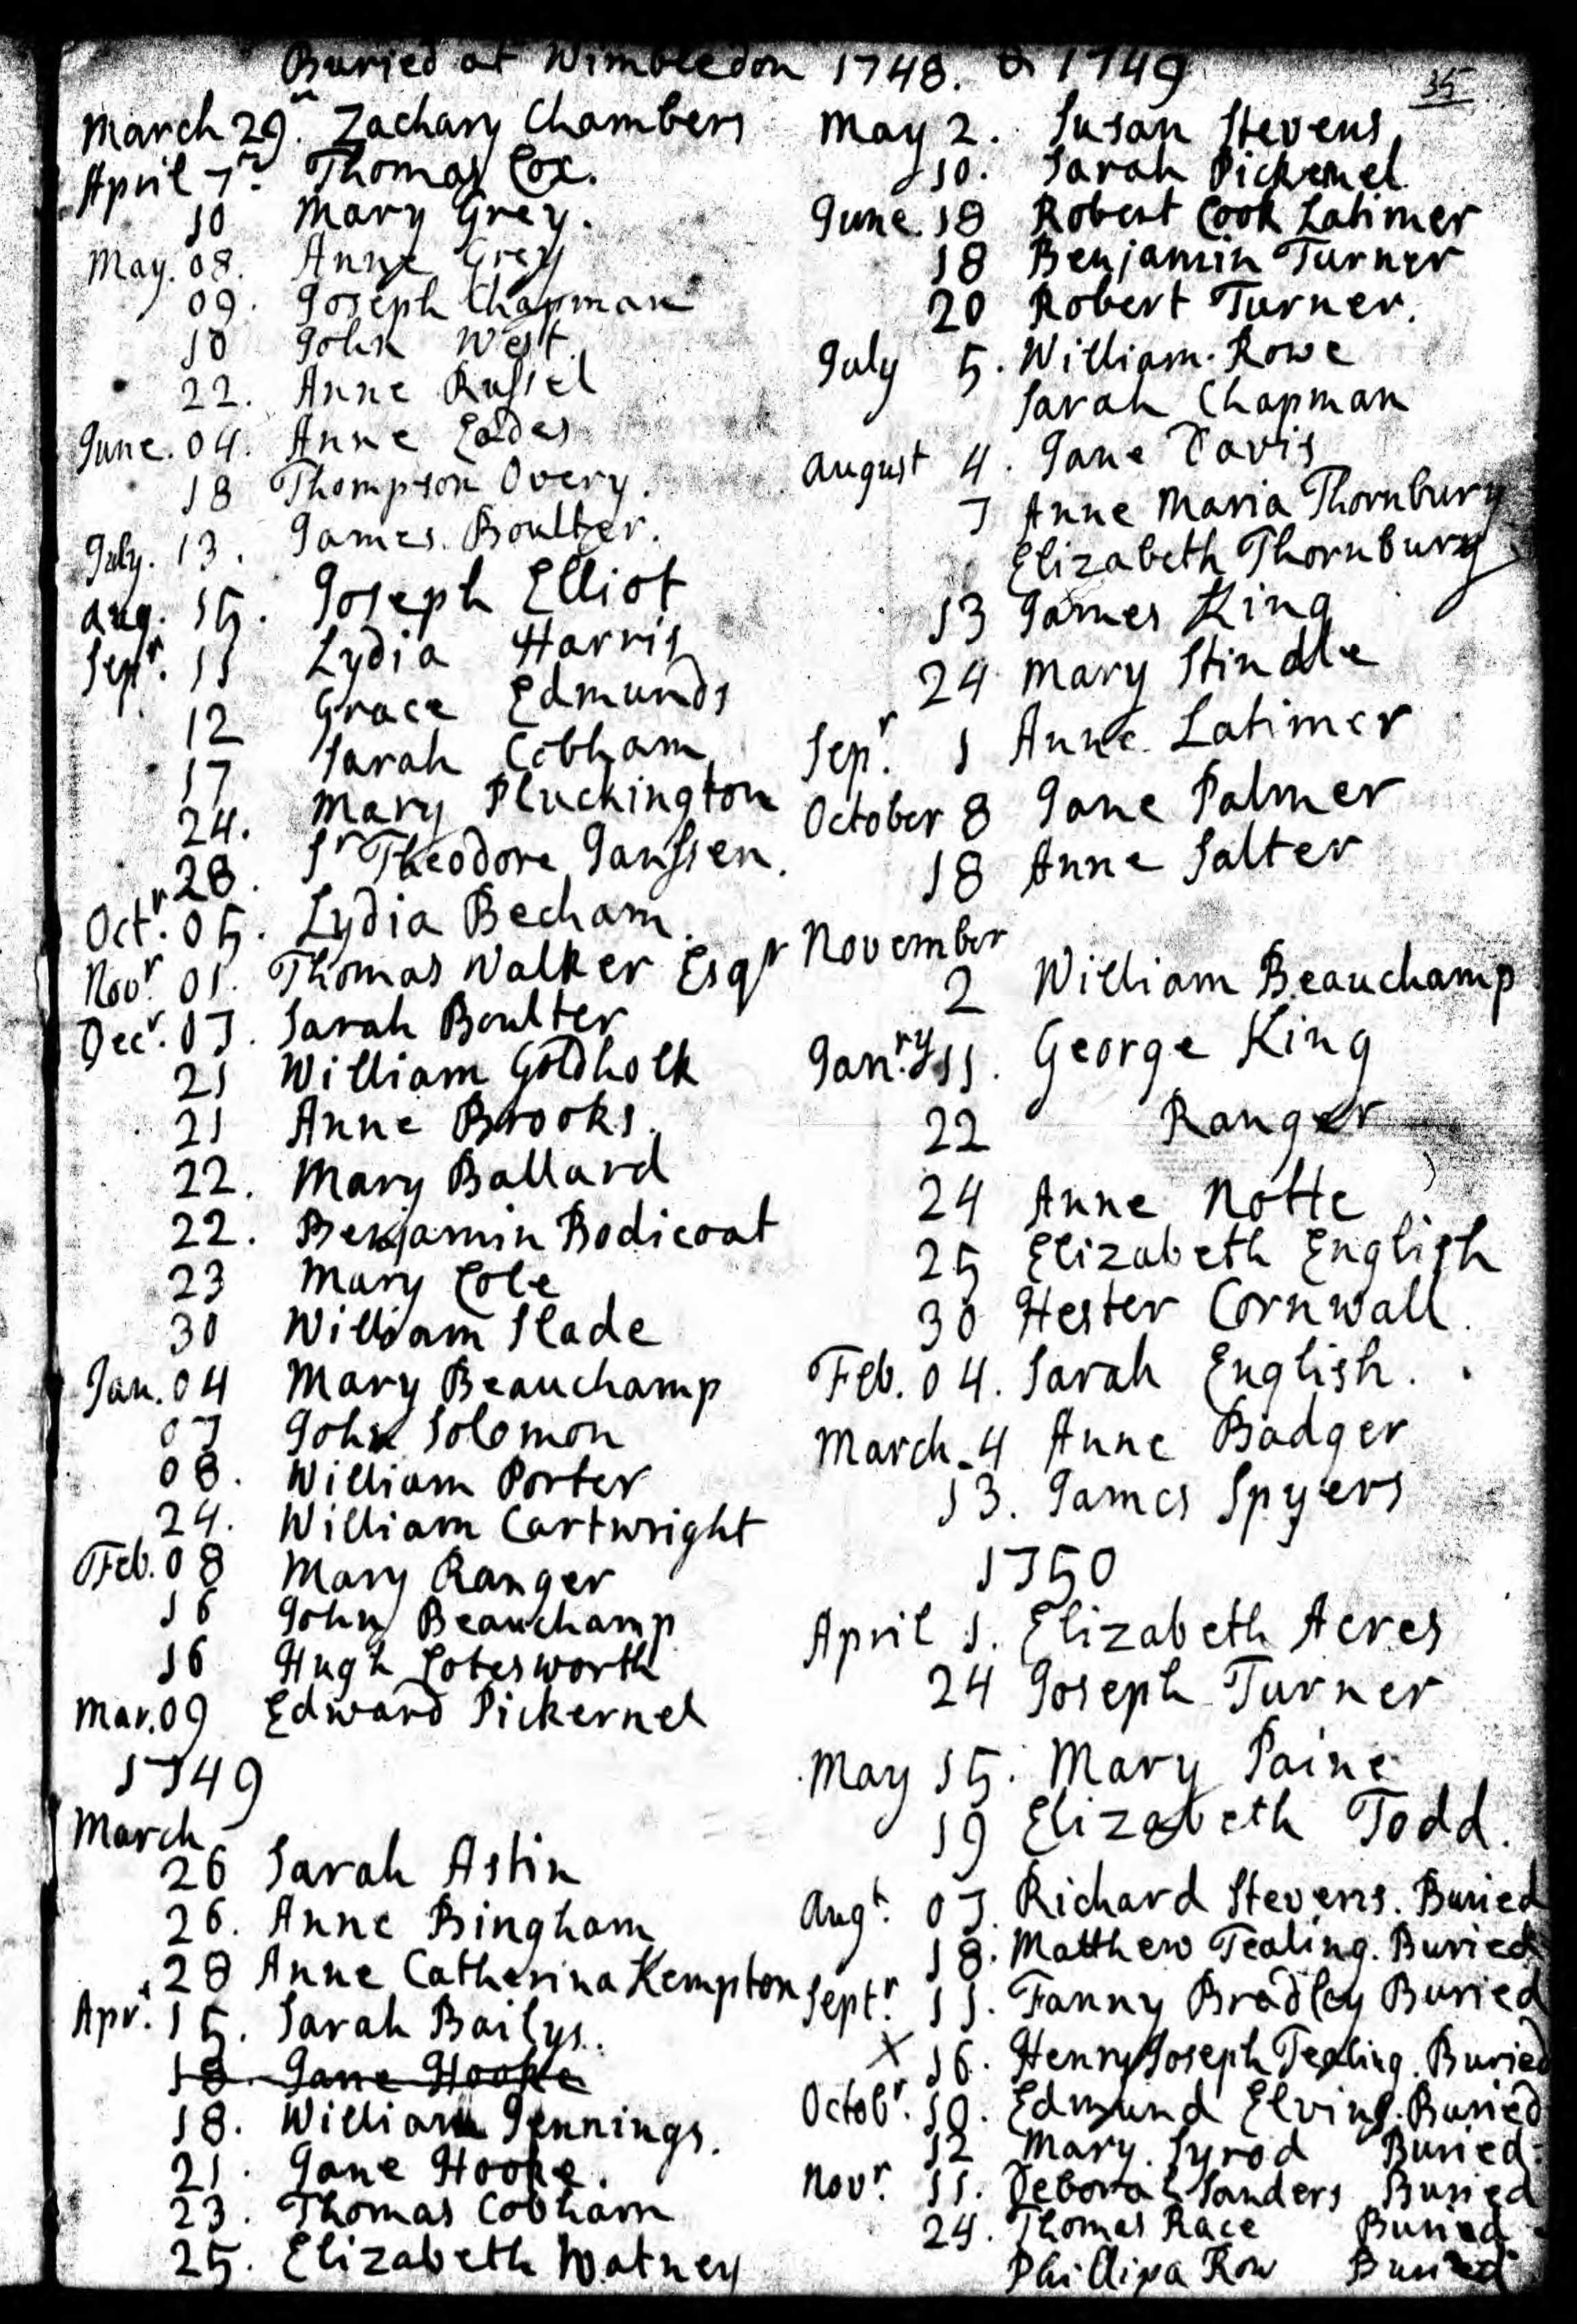 Buried at Wimbledon 1748. & 1749
35
March 29th. Zachary Chambers
April 7th. Thomas Cox.
10 Mary Grey.
May. 08. Anne Grey
09. Joseph Chapman
10 John West.
22. Anne Russel
June. 04. Anne Eades
18 Thompson Overy.
July. 13. James Boulter.
Aug. 15. Joseph Elliot
Sepr. 11 Lydia Harris
12 Grace Edmunds
17 Sarah Cobham
24. Mary Pluckington
28. Sr Theodore Janssen.
Octr. 05. Lydia Becham.
Novr. 01. Thomas Walker Esqr
Decr. 07. Sarah Boulter
21 William Goldholk
21 Anne Brooks.
22. Mary Ballard
22. Benjamin Bodicoat
23 Mary Cole
30 William Slade
Jan. 04 Mary Beauchamp
07 John Solomon
08. William Porter
24. William Cartwright
Feb. 08 Mary Ranger
16 John Beauchamp
16 Hugh Cotesworth
Mar. 09 Edward Pickernel
1749
March
26 Sarah Astin
26. Anne Bingham
28 Anne Catherina Kempton
Apr. 15. Sarah Bailys.
18. Jane Hooke
18. William Jennings.
21. Jane Hooke.
23. Thomas Cobham
25. Elizabeth Watney
May 2. Susan Stevens
10. Sarah Pickernel
June. 18 Robert Cook Latimer
18 Benjamin Turner
20 Robert Turner.
July 5. William Rowe
Sarah Chapman
August 4. Jane Davis
7 Anne Maria Thornbury
Elizabeth Thornbury
13 James King
24 Mary Stindle
Sepr. 1 Anne Latimer
October 8 Jane Palmer
18 Anne Salter
November
2 William Beauchamp
Janry. 11. George King
22 Ranger
24 Anne Notte
25 Elizabeth English
30 Hester Cornwall.
Feb. 04. Sarah English.
March 4 Anne Badger
13. James Spyers
1750
April 1. Elizabeth Acres
24 Joseph Turner
May 15. Mary Paine
19 Elizabeth Todd.
Augt. 07. Richard Stevens. Buried
18. Matthew Tealing. Buried
Septr. 11. Fanny Bradley Buried
X 16. Henry Joseph Tealing. Buried
Octobr. 10. Edmund Elving. Buried
12 Mary. Syrod Buried.
Novr. 11. Deborah Sanders Buried
24. Thomas Race Buried
Phillipa Row Buried